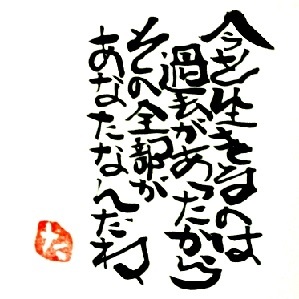 今を生きるのは
過去があったから
その全部が
あなたなんだね
た